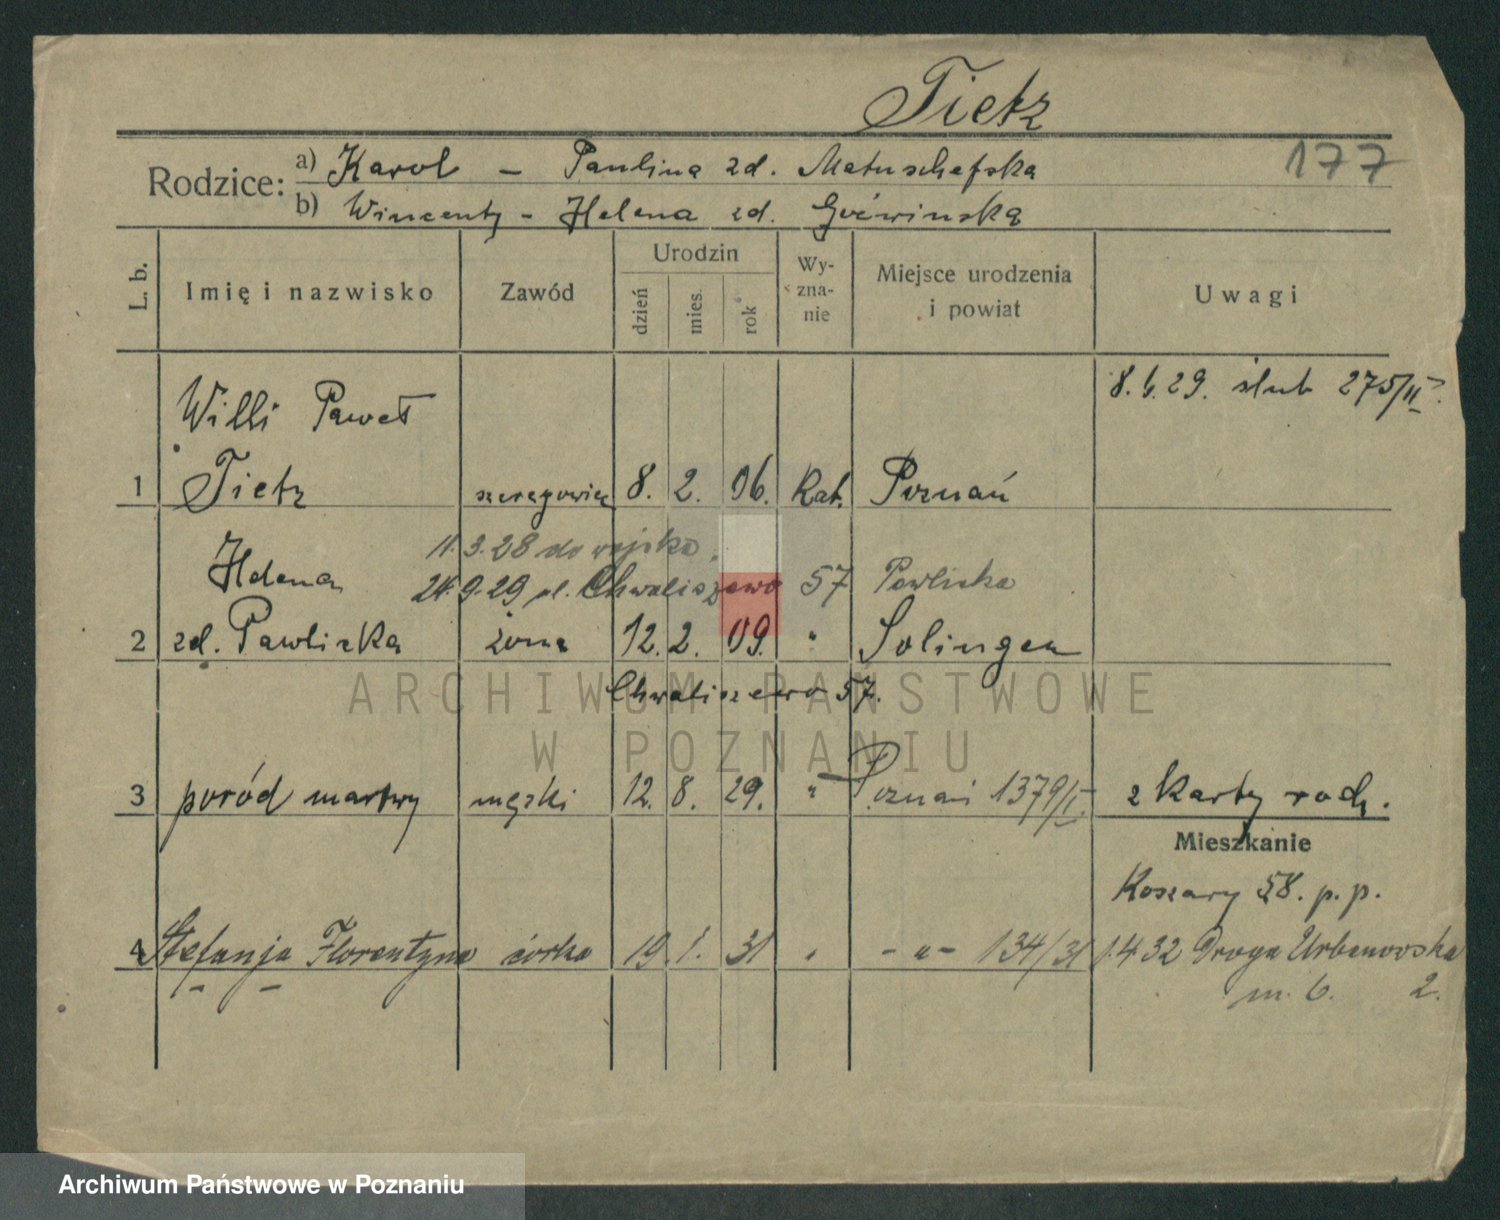 Tietz
177
Rodzice: a) Karol - Paulina zd. Matuschefska
b) Wincenty - Helena zd. Goćwinska
L. b. Imię i nazwisko Zawód Urodzin dzień mies. rok Wy-zna-nie Miejsce urodzenia i powiat Uwagi
8.6.29. ślub 275/II.
Willi Paweł
1 Tietz szeregowiec 8. 2. 06. Kat. Poznań
11.3.28 do wojska.
Helena
24.9.29 pl. Chwaliszewo 57 Pawlicka
2 zd. Pawliska żona 12. 2. 09. " Solingen
Chwaliszewo 57.
ARCHIWUM PAŃSTWOWE
W POZNANIU
3 poród martwy męzki 12. 8. 29. " Poznań 1379/I. z karty rodz.
Mieszkanie
Koszary 58. p. p.
4 Stefanja Florentyna córka 19. 1. 31 " - " - 134/31 1.4.32 Droga Urbanowska
m. 6. 2.
Archiwum Państwowe w Poznaniu